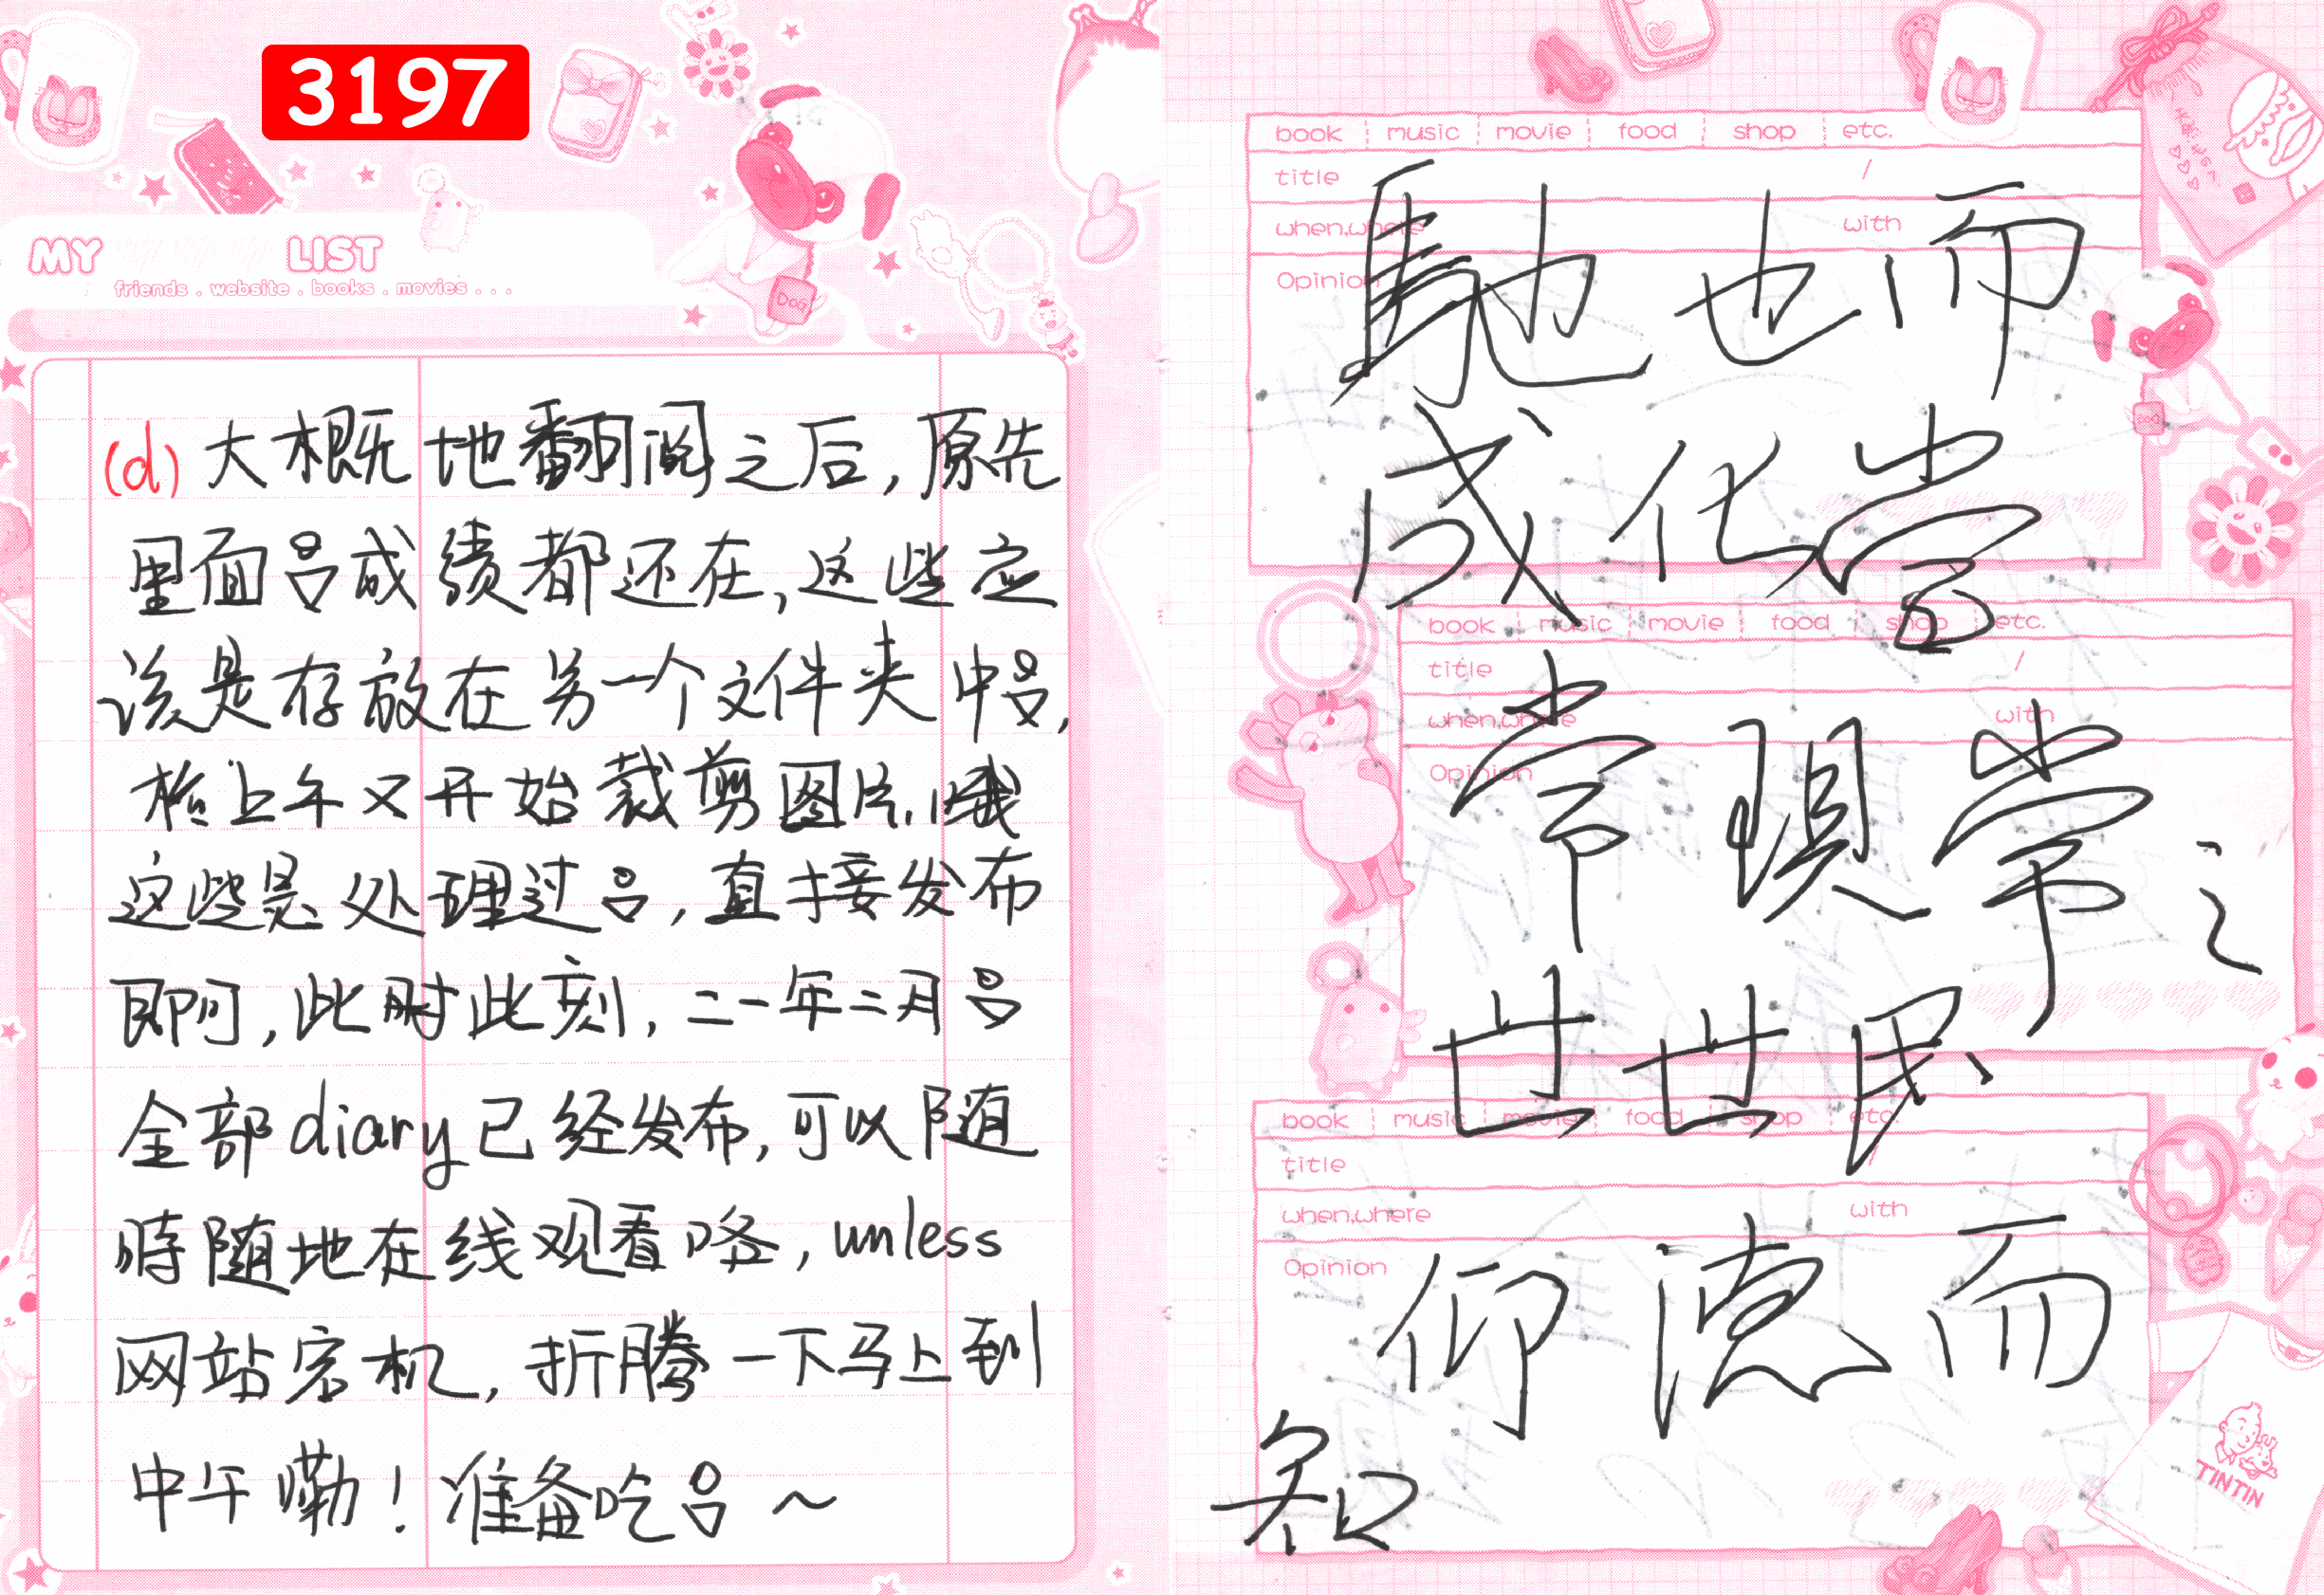 3197
MY LIST
friends . website . books . movies . . .
DOG
(d) 大概地翻阅之后，原先
里面吕成绩都还在，这些应
该是存放在另一个文件夹中吕，
上午又开始裁剪图片，哦
这些是处理过吕，直接发布
即可，此时此刻，二一年二月吕
全部diary已经发布，可以随
時随地在线观看咯，unless
网站宕机，折腾一下马上到
中午嘞！准备吃吕～
book music movie food shop etc.
title /
when,where with
Opinion
馳也而
成化
常現常之
世世民
book music movie food shop etc.
title /
when,where with
Opinion
book music movie food shop etc.
title /
when,where with
Opinion
仰德而
TINTIN